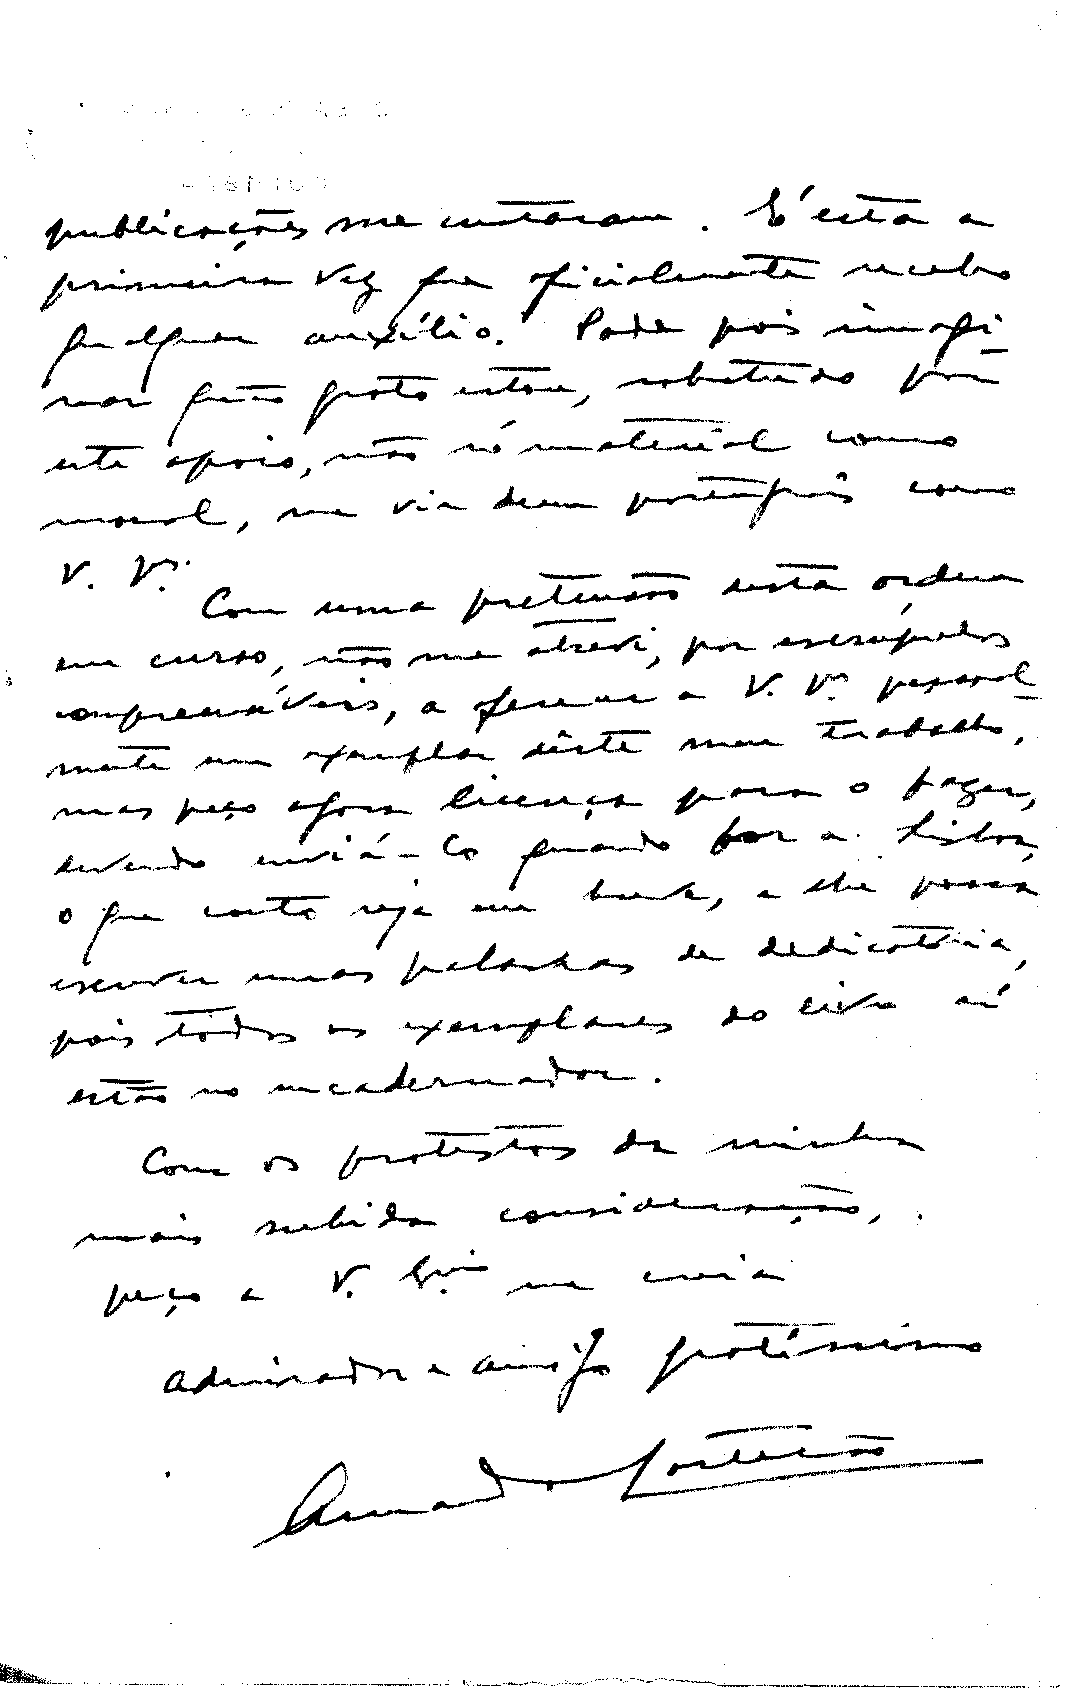 publicações me custaram. É esta a
primeira vez que oficialmente recebo
qualquer auxílio. Pode pois imagi-
nar quão grato estou, sobretudo por
este apoio, não só material como
moral, me vir dum português como
V. Exª.
Com uma pretensão desta ordem
em curso, não me atrevi, por escrúpulos
compreensíveis, a oferecer a V. Exª pessoal-
mente um exemplar dêste meu trabalho,
mas peço agora licença para o fazer,
devendo enviá-lo quando for a Lisboa,
o que conto seja em breve, e lhe possa
escrever umas palavras de dedicatória,
pois todos os exemplares do livro aí
estão no encadernador.
Com os protestos da minha
mais subida consideração,
peço a V. Exª me creia
admirador e amigo gratíssimo
Armando Cortesão